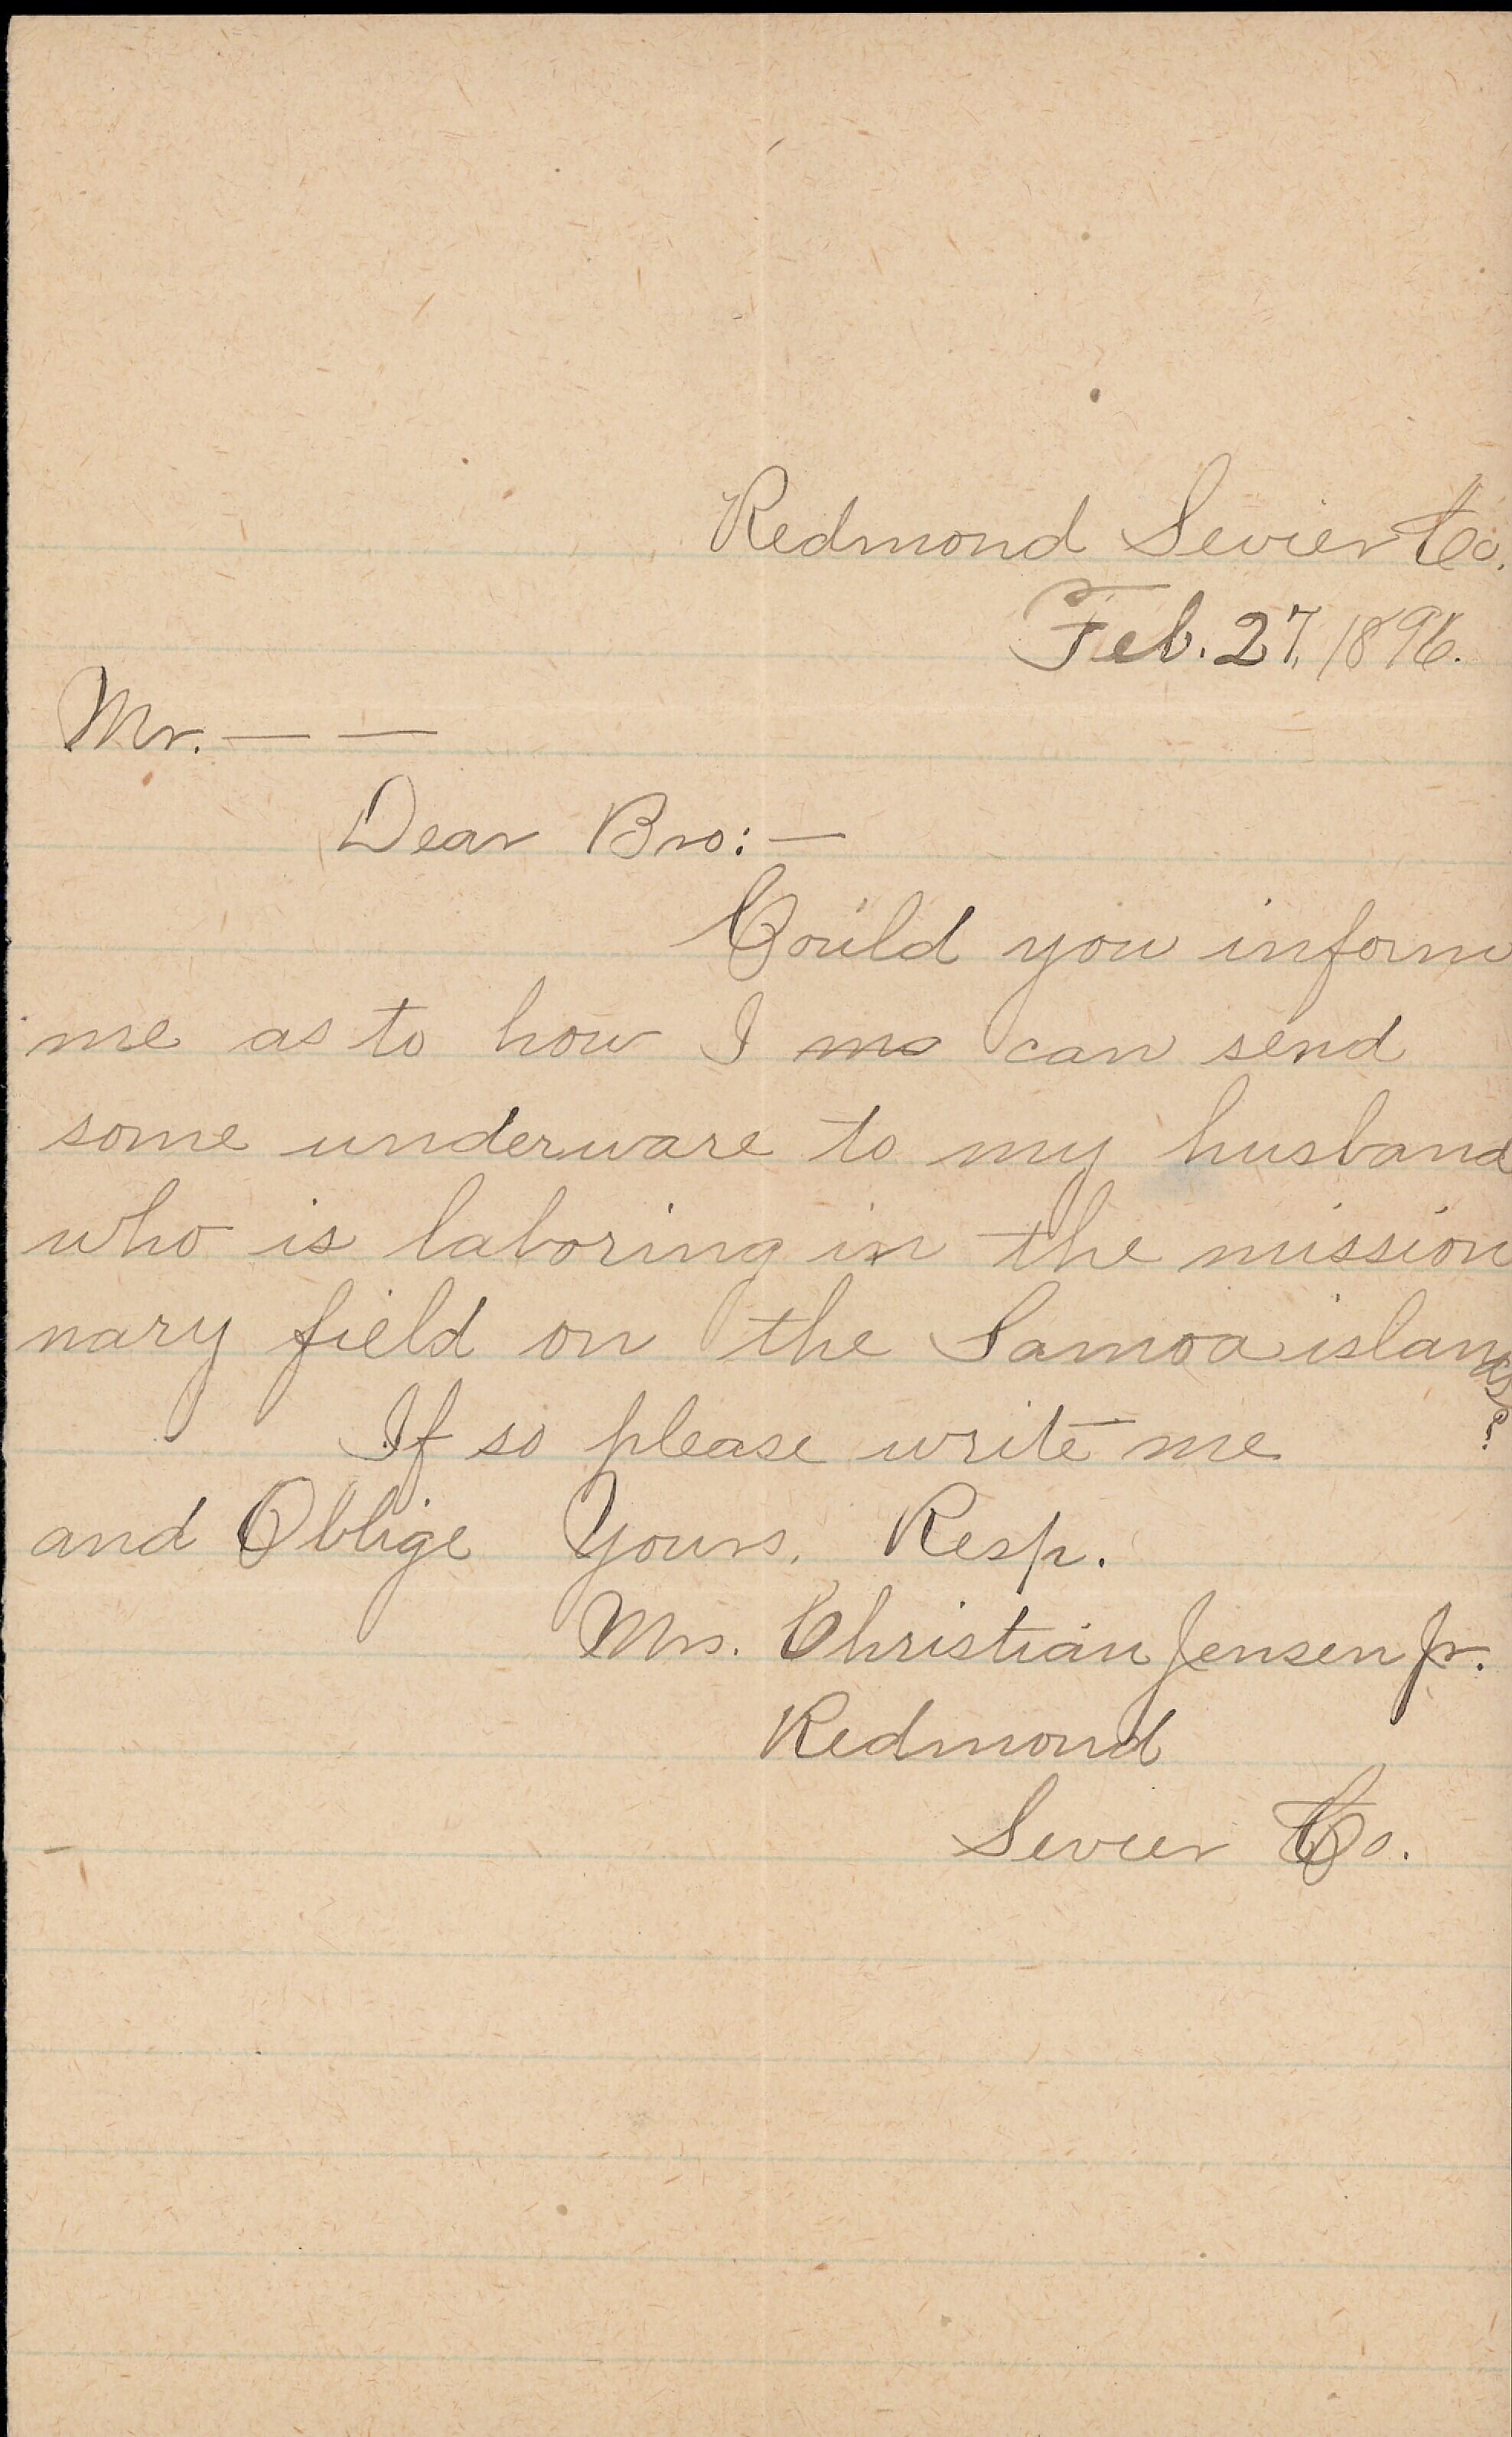 Redmond Sevier Co.
Feb. 27, 1896.
Mr. — —
Dear Bro: —
Could you inform
me as to how I can send
some underware to my husband
who is laboring in the mission
nary field on the Samoa islands?
If so please write me
and Oblige Yours, Resp.
Mrs. Christian Jensen Jr.
Redmond
Sevier Co.